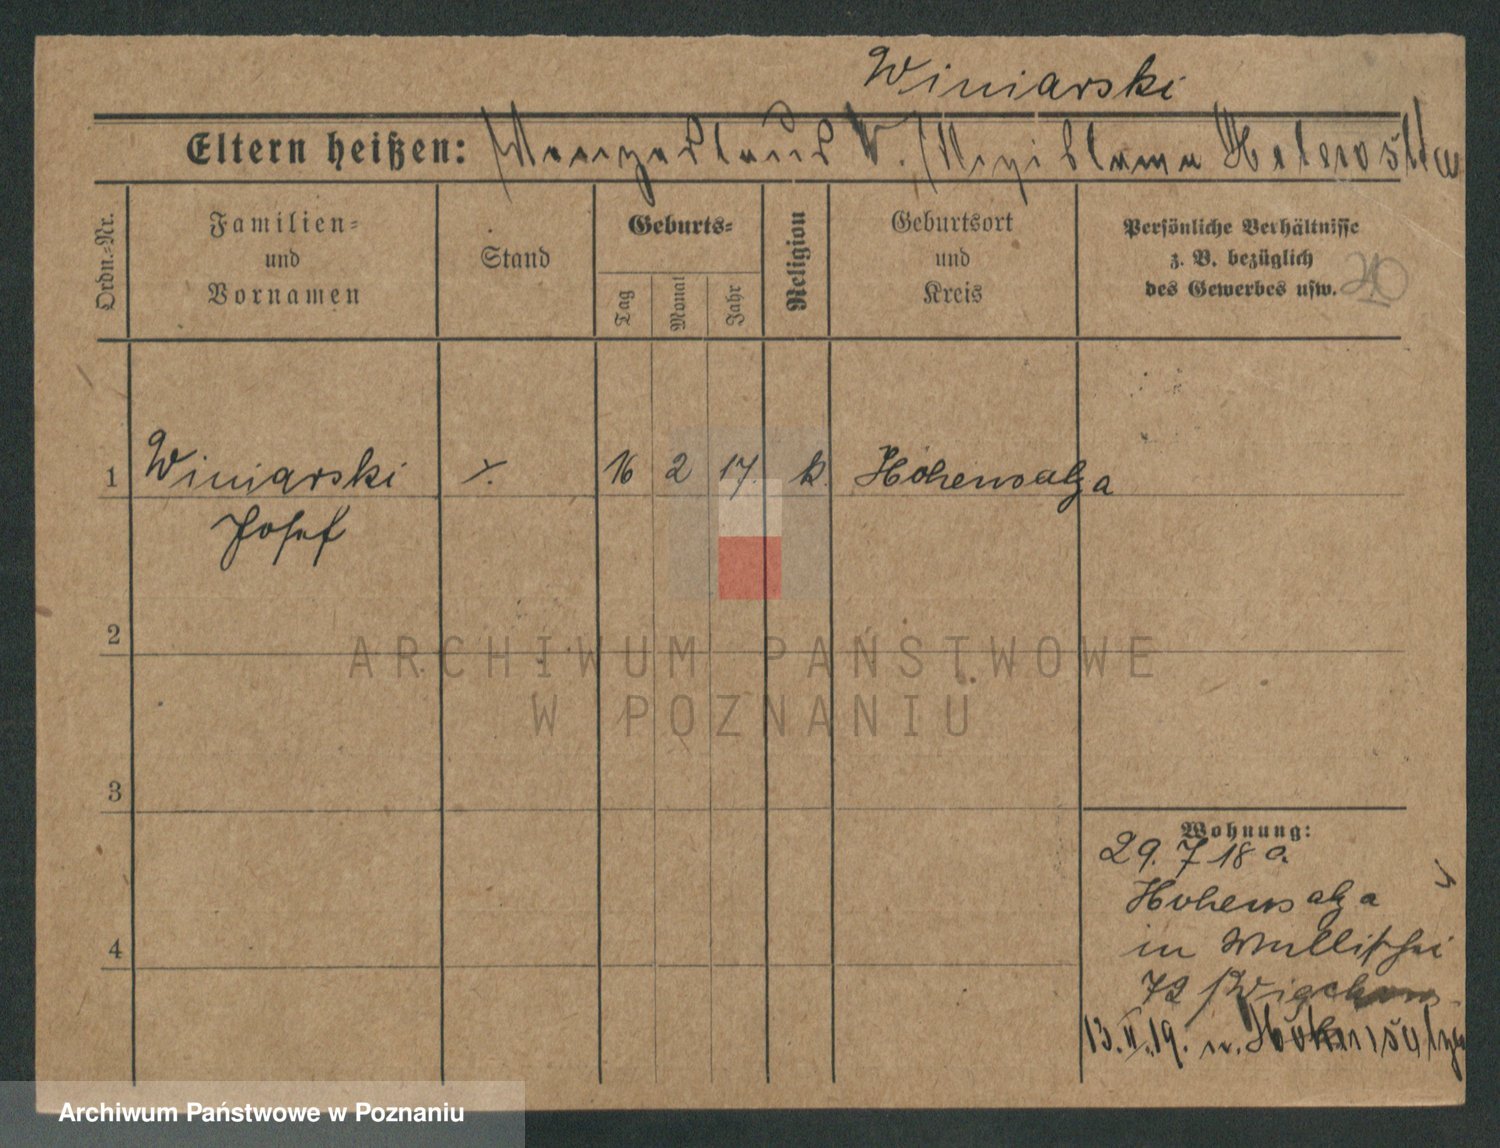 Winiarski
Eltern heißen: W.
Ordn.=Nr.
Familien=
und
Vornamen
Stand
Geburts=
Tag
Monat
Jahr
Religion
Geburtsort
und
Kreis
Persönliche Verhältnisse
z. B. bezüglich
des Gewerbes usw.
1 Winiarski 16 2 17. k. Hohensalza
Josef
2
3
4
Wohnung:
29. 7 18 a.
Hohensalza
in
72
13. II. 19. n. Hohensalza
ARCHIWUM PAŃSTWOWE
W POZNANIU
Archiwum Państwowe w Poznaniu